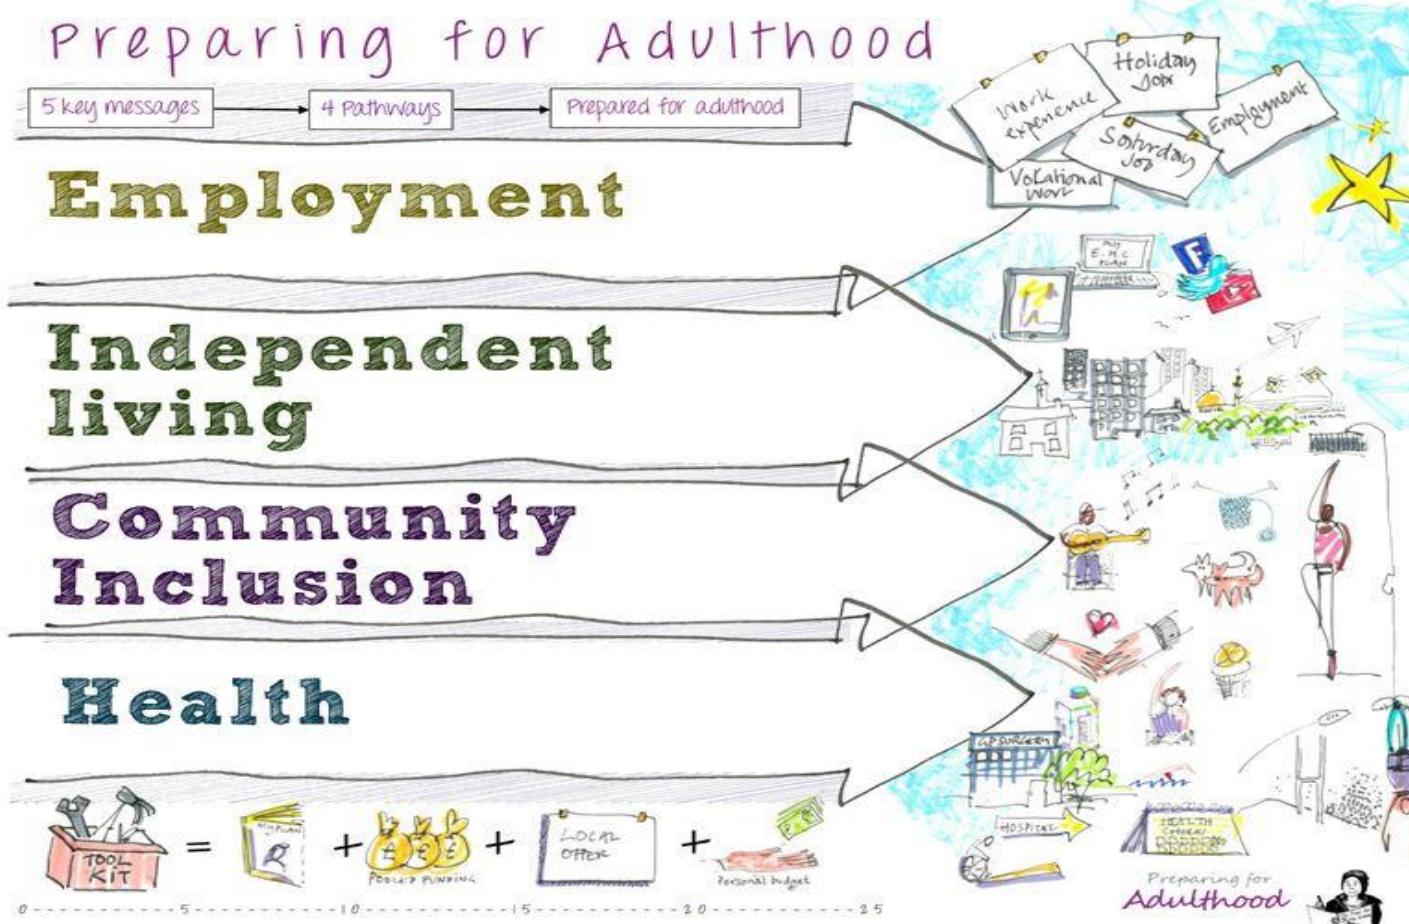 Preparing for Adulthood
5 key messages
4 Pathways
Prepared for adulthood
Employment
Independent
living
Community
Inclusion
Health
Work
experience
Holiday
Job
Employment
Saturday
Job
Vocational
Work
MY
E.H.C
PLAN
F
GP SURGERY
HOSPITAL
HEALTH
CHECK
TOOL
KIT
=
MY PLAN
+
£ £ £
POOLED FUNDING
+
LOCAL
OFFER
+
Personal budget
0 5 10 15 20 25
Preparing for
Adulthood